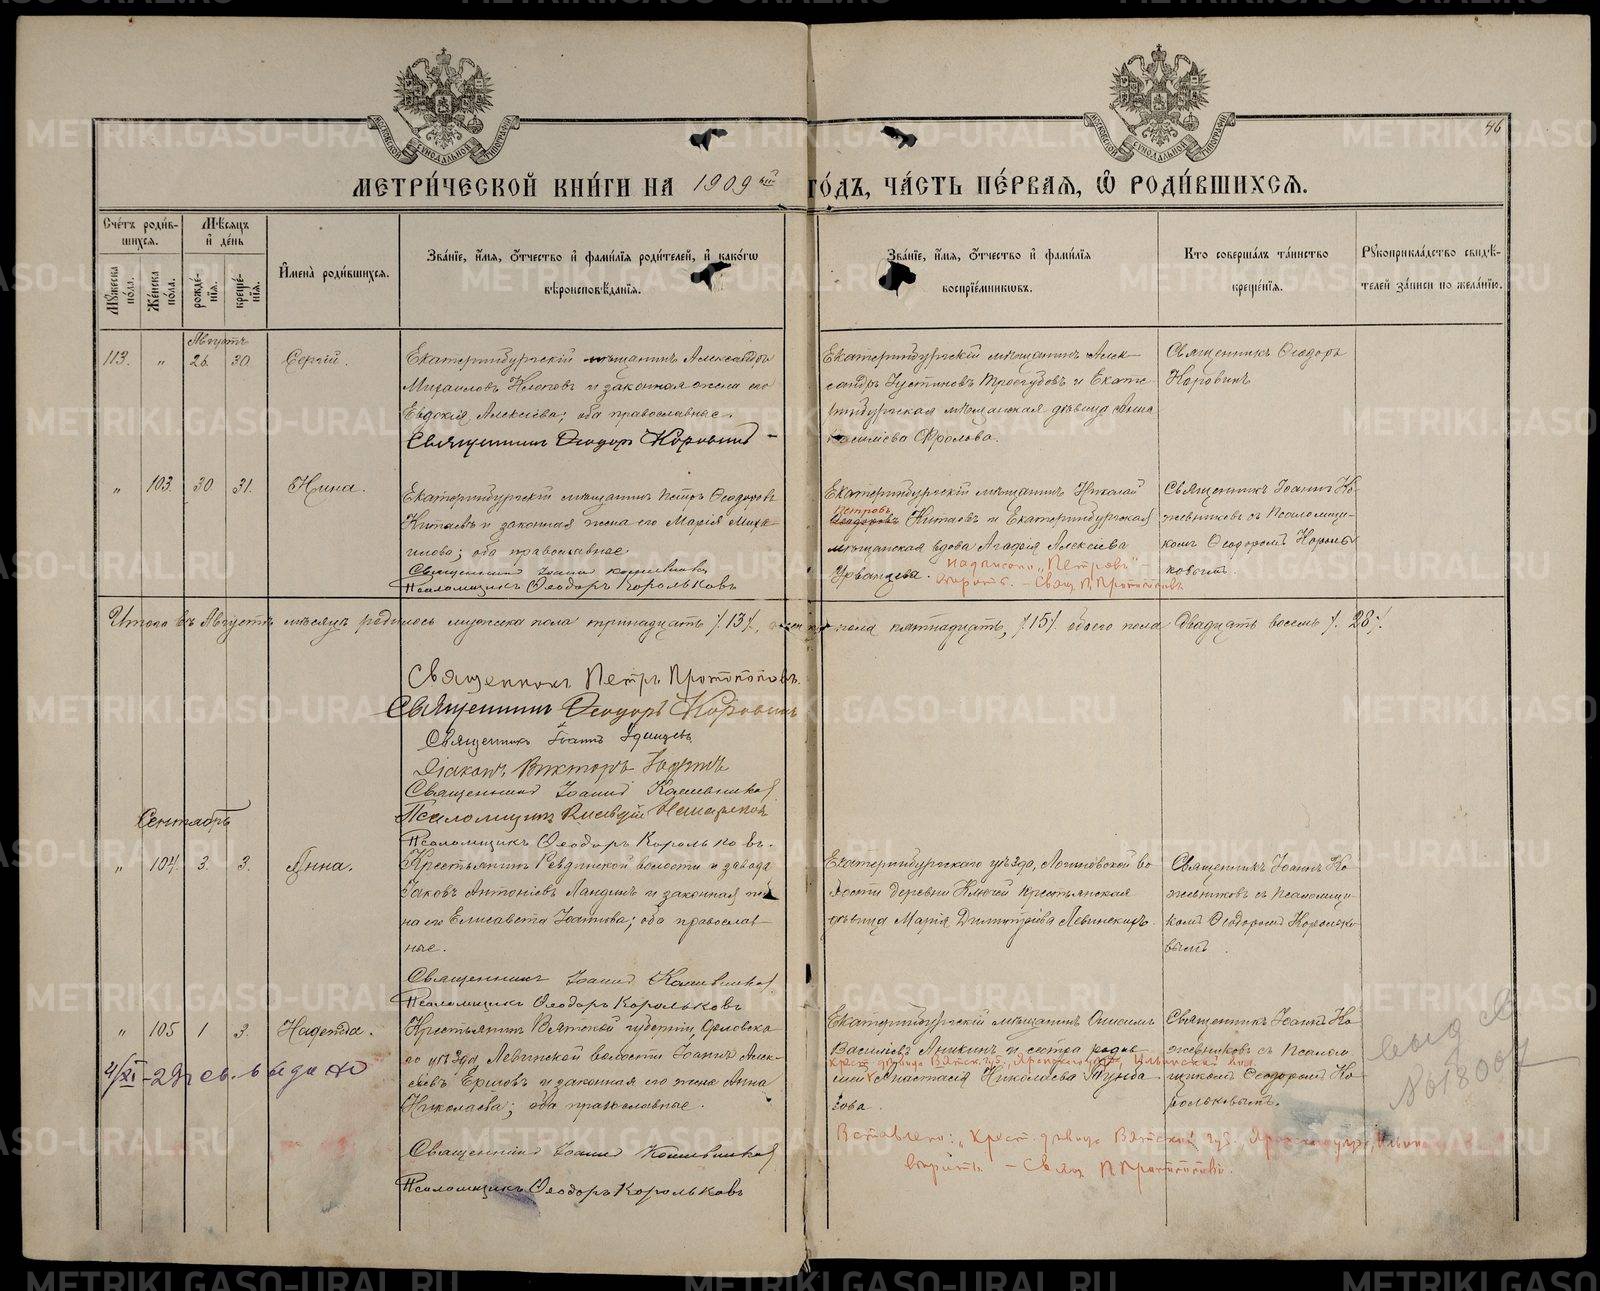 46
МЕТРИ́ЧЕСКОЙ КНИ́ГИ НА 1909 ый ГО́ДЪ, ЧА́СТЬ ПЕ́РВАЯ, Ѽ РОДИ́ВШИХСЯ.
Сче́тъ роди́в-
шихся.
Мѣсяцъ
и҆ де́нь
Мꙋжеска по́ла.
Же́нска по́ла.
рожде́-
нїѧ.
креще́-
нїѧ.
И҆мена̀ роди́вшихся.
Зва́нїе, и҆́мя, ѻ҆́тчество и҆ фами́лїя роди́телей, и҆ како́гѡ
вѣроисповѣ́данїя.
Зва́нїе, и҆́мя, ѻ҆́тчество и҆ фами́лїя
воспрїе́мникѡвъ.
Кто соверша́лъ та́инство
креще́нїя.
Рꙋкоприкла́дство свидѣ́-
телей за́писи по жела́нїю.
Августъ
113. " 26. 30. Сергій.
Екатеринбургскій мѣщанинъ Александръ
Михаиловъ и законная жена его
Евдокія Алексіева; оба православные.
Священникъ Ѳеодоръ Коровинъ
Екатеринбургскій мѣщанинъ Алек-
сандръ Іустиновъ и Екате-
ринбургская мѣщанская дѣвица Анна
Василіева Фролова.
Священникъ Ѳеодоръ
Коровинъ
" 103. 30 31. Нина.
Екатеринбургскій мѣщанинъ Петръ Ѳеодоровъ
Китаевъ и законная жена его Марія Миха-
илова; оба православные
Священникъ Іоаннъ Кожевниковъ
Псаломщикъ Ѳеодоръ Корольковъ
Екатеринбургскій мѣщанинъ Николай
Петровъ
Ѳеодоровъ Китаевъ и Екатеринбургская
мѣщанская вдова Агафія Алексіева
Надписано „Петровъ"
вѣрить. – Свящ П Протопоповъ
Священникъ Іоаннъ Ко-
жевниковъ съ Псаломщи-
комъ Ѳеодоромъ Король-
ковымъ.
Итого въ Августѣ мѣсяцѣ родилось мужеска пола тринадцать /13/, женска пола пятнадцать, /15/ обоего пола двадцать восемь /28/.
Священникъ Петръ Протопоповъ.
Священникъ Ѳеодоръ Коровинъ
Священникъ Іоаннъ
Діаконъ Викторъ
Священникъ Іоаннъ Кожевниковъ
Псаломщикъ
Псаломщикъ Ѳеодоръ Корольковъ.
Сентябрь
" 104. 3. 3. Анна.
Крестьянинъ Ревдинской волости и завода
Іаковъ Антоніевъ Ландинъ и законная же-
на его Елисавета Іоаннова; оба православ-
ные.
Священникъ Іоаннъ Кожевниковъ
Псаломщикъ Ѳеодоръ Корольковъ
Екатеринбургскаго уѣзда, Логиновской во-
лости деревни Ключей крестьянская
дѣвица Марія Димитріева Левинскихъ.
Священникъ Іоаннъ Ко-
жевниковъ съ Псаломщи-
комъ Ѳеодоромъ Королько-
вымъ.
" 105 1 3. Надежда.
4/XI – 29 г св. выдано
Крестьянинъ Вятской губерніи, Орловска-
го уѣзда, Левинской волости Іоаннъ Алек-
сіевъ Ермовъ и законная его жена Анна
Николаева; оба православные.
Священникъ Іоаннъ Кожевниковъ
Псаломщикъ Ѳеодоръ Корольковъ
Екатеринбургскій мѣщанинъ Онисимъ
Василіевъ Аникинъ и сестра роди-
крест. дѣвица Вятск. губ.
Анастасія Николаева
Вставлено: „Крест. дѣвица Вятской губ.
вѣрить – Свящ П Протопоповъ.
Священникъ Іоаннъ Ко-
жевниковъ съ Псалом-
щикомъ Ѳеодоромъ Ко-
рольковымъ.
выд св
№ 18007
METRIKI.GASO-URAL.RU